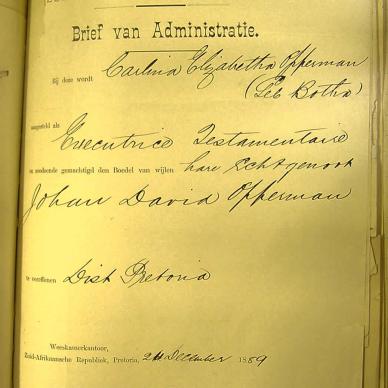 Brief van Administratie.
Bij deze wordt Carlina Elizabetha Opperman
(Geb Botha)
aangesteld als Executrice Testamentaire
en zoodoende gemachtigd den Boedel van wijlen hare Echtgenoot
Johan David Opperman
te vereffenen Dist Pretoria
Weeskamerkantoor,
Zuid-Afrikaansche Republiek, Pretoria, December 1889